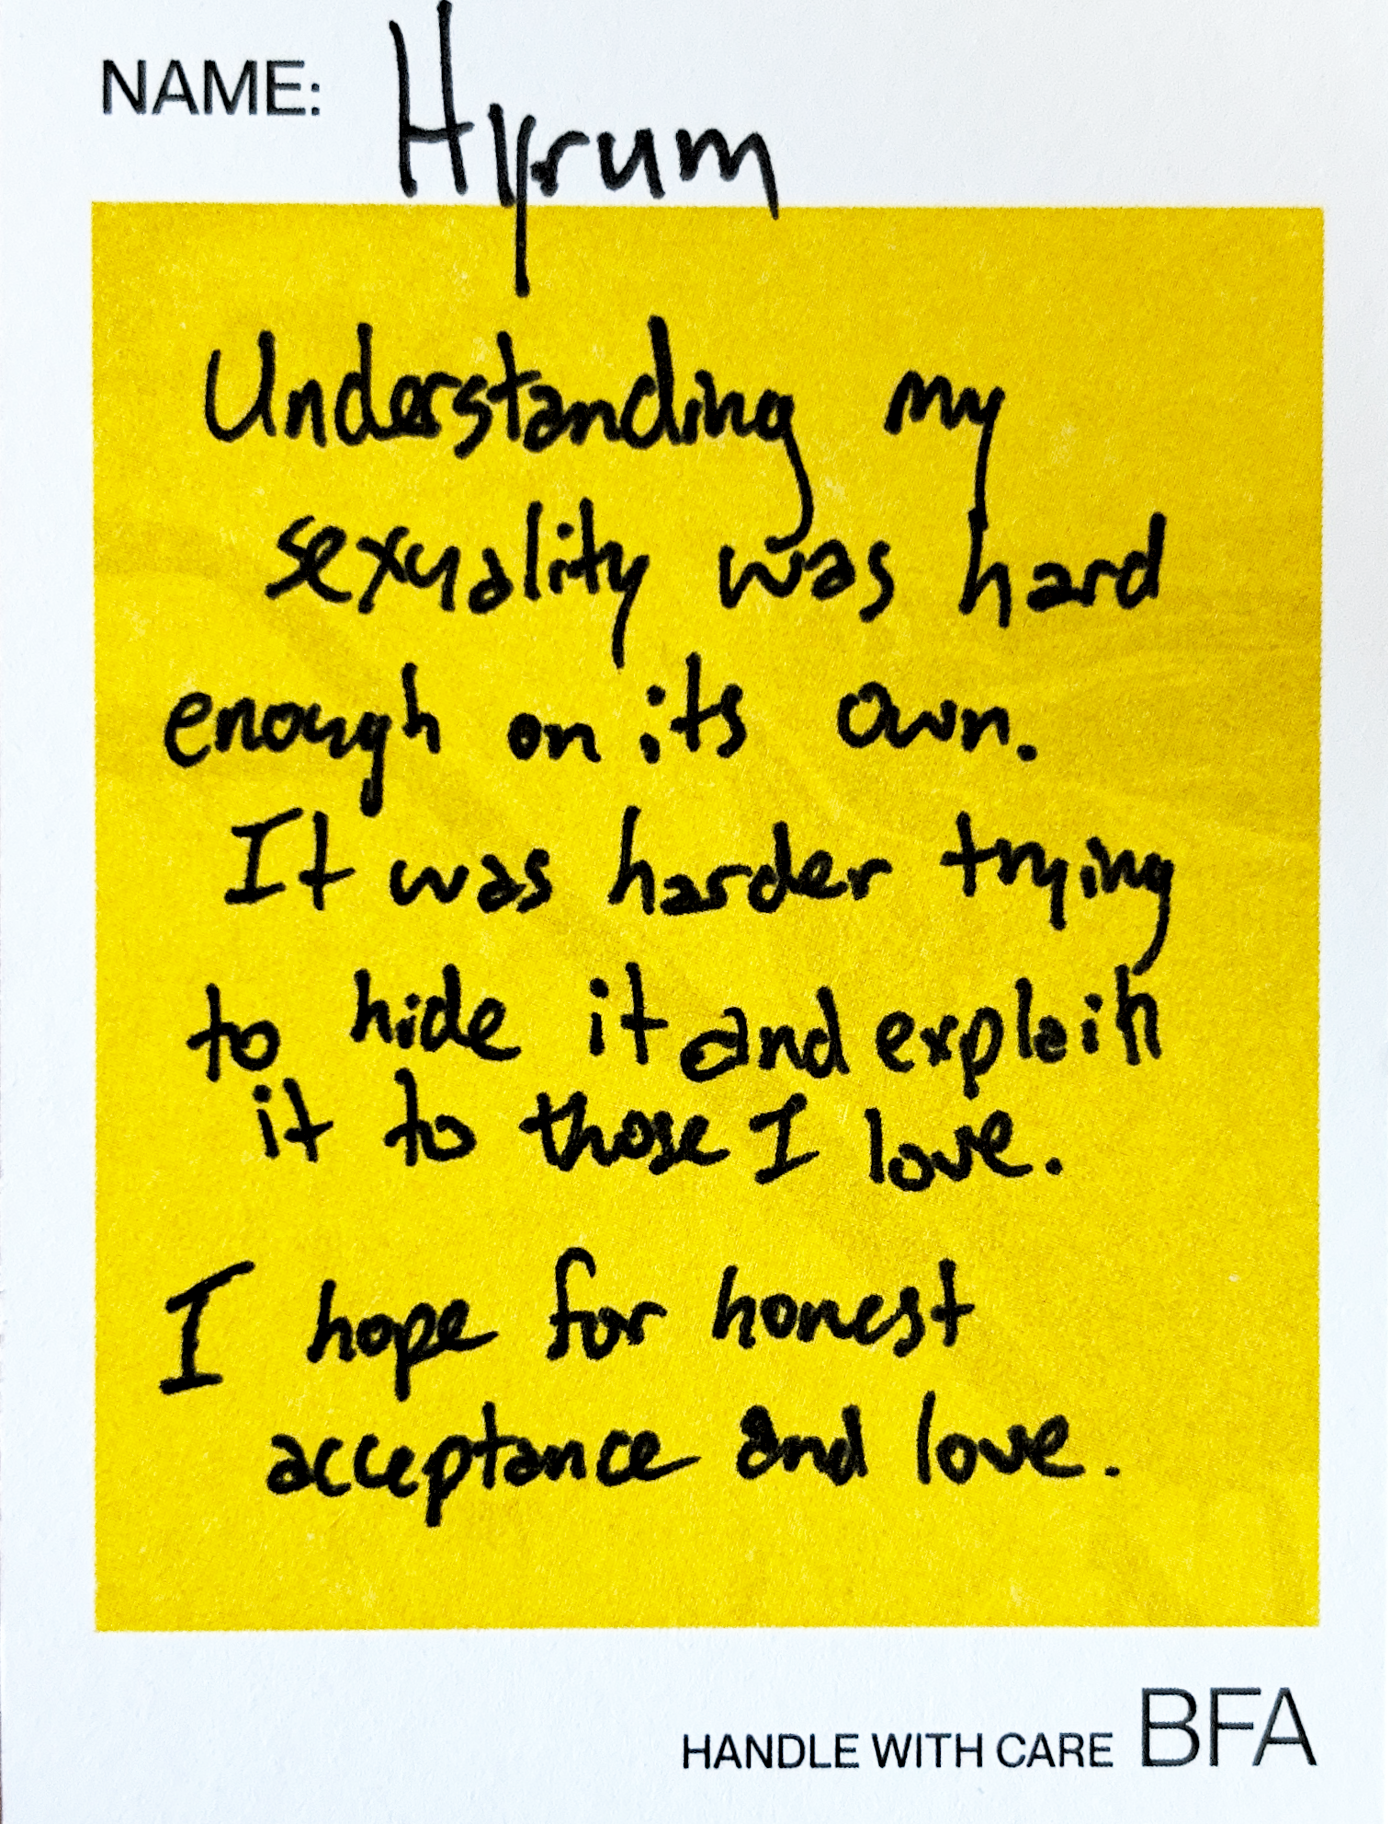 NAME: Hyrum
Understanding my
sexuality was hard
enough on its own.
It was harder trying
to hide it and explain
it to those I love.
I hope for honest
acceptance and love.
HANDLE WITH CARE BFA